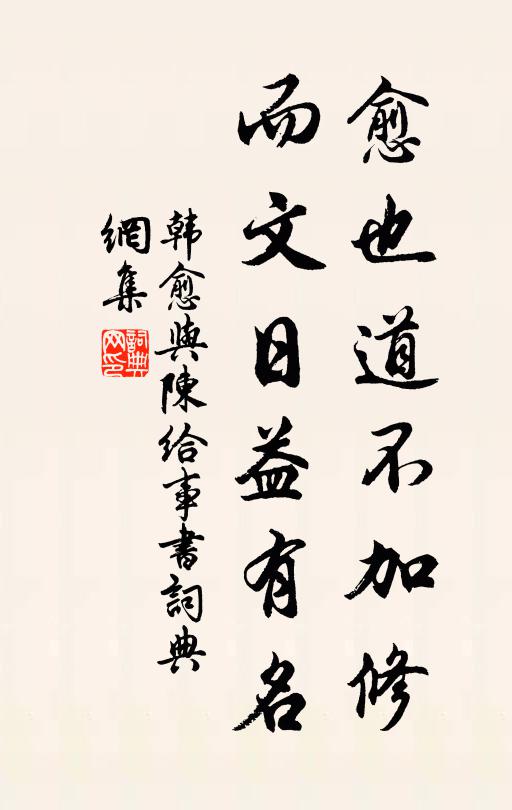 愈也道不加修
而文日益有名
韩愈與陳给事書詞典
網集
詞典
网印